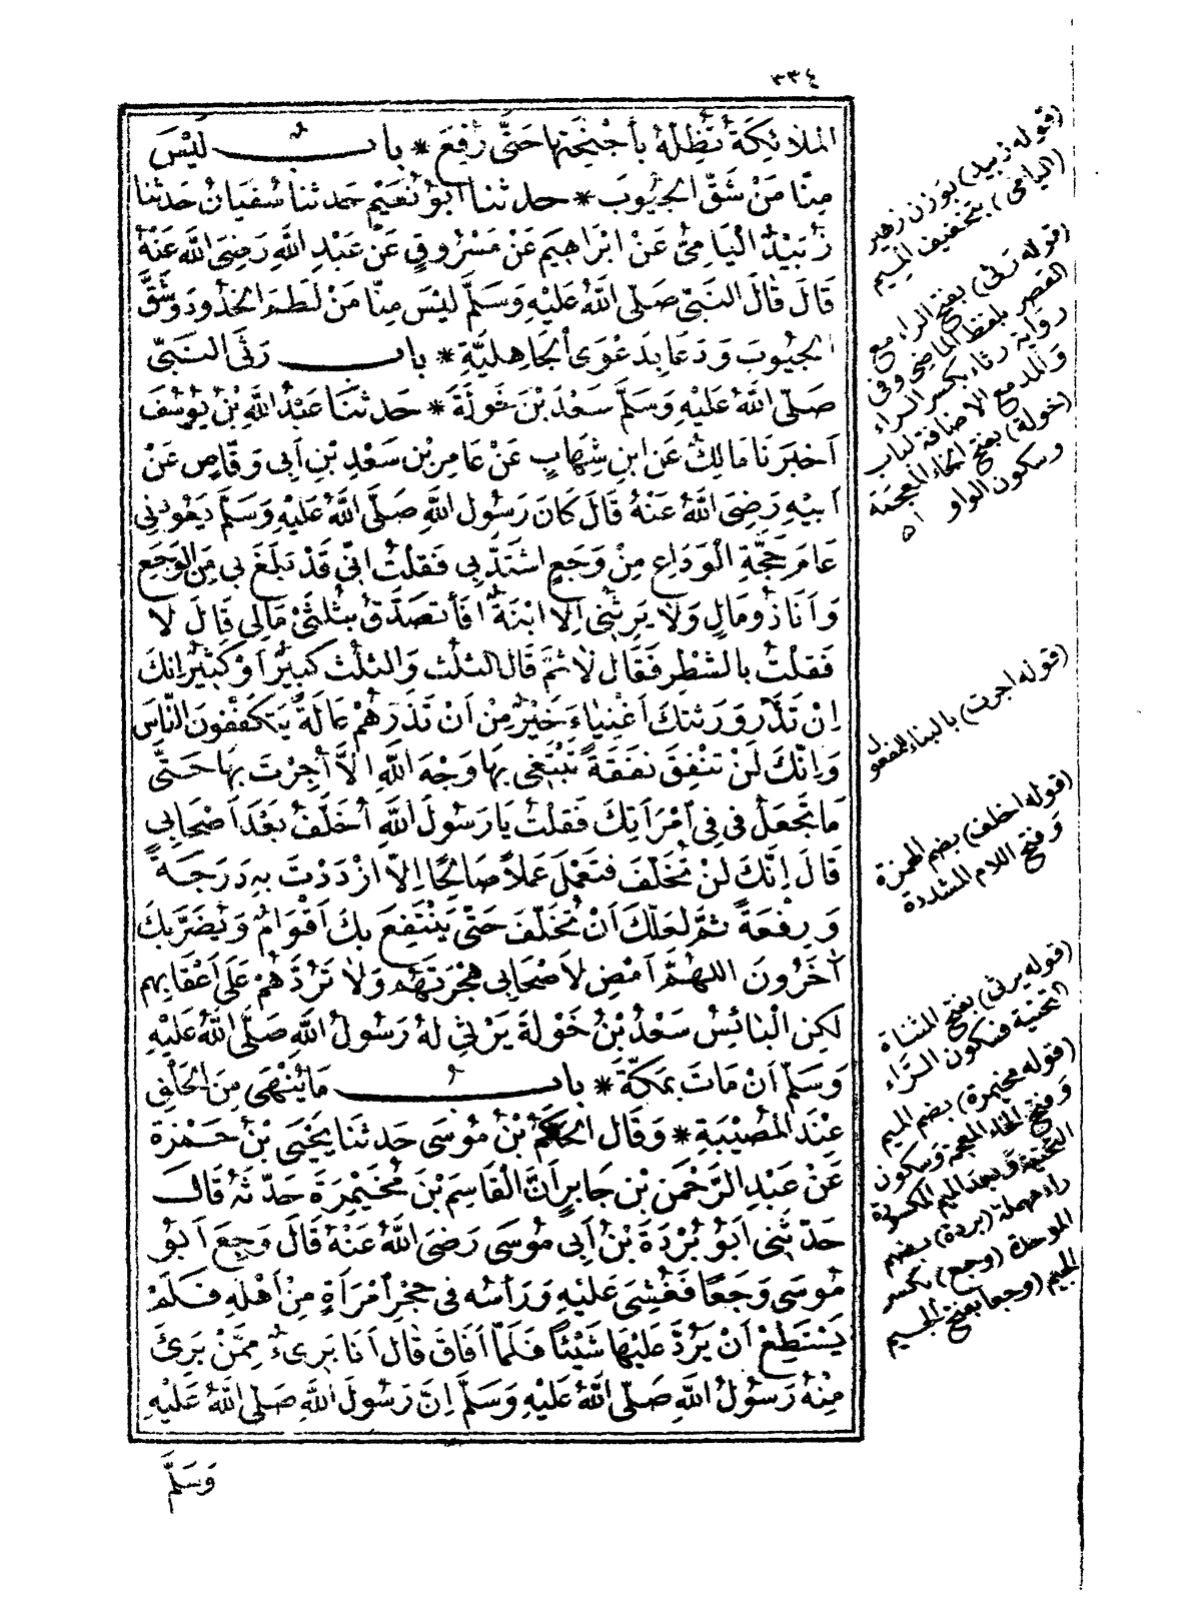 ٣٣٤
الْمَلَائِكَةُ تُظِلُّهُ بِأَجْنِحَتِهَا حَتَّى رُفِعَ * بابٌ لَيْسَ
مِنَّا مَنْ شَقَّ الْجُيُوبَ * حدثنا أَبُو نُعَيْمٍ حدثنا سُفْيَانُ حدثنا
زُبَيْدٌ الْيَامِيُّ عَنْ إِبْرَاهِيمَ عَنْ مَسْرُوقٍ عَنْ عَبْدِ اللَّهِ رَضِيَ اللَّهُ عَنْهُ
قَالَ قَالَ النَّبِيُّ صَلَّى اللَّهُ عَلَيْهِ وَسَلَّمَ لَيْسَ مِنَّا مَنْ لَطَمَ الْخُدُودَ وَشَقَّ
الْجُيُوبَ وَدَعَا بِدَعْوَى الْجَاهِلِيَّةِ * باب رَثَى النَّبِيُّ
صَلَّى اللَّهُ عَلَيْهِ وَسَلَّمَ سَعْدَ بْنَ خَوْلَةَ * حَدثنَا عَبْدُ اللَّهِ بْنُ يُوسُفَ
أَخْبَرَنَا مَالِكٌ عَنِ ابْنِ شِهَابٍ عَنْ عَامِرِ بْنِ سَعْدِ بْنِ أَبِي وَقَّاصٍ عَنْ
أَبِيهِ رَضِيَ اللَّهُ عَنْهُ قَالَ كَانَ رَسُولُ اللَّهِ صَلَّى اللَّهُ عَلَيْهِ وَسَلَّمَ يَعُودُنِي
عَامَ حَجَّةِ الْوَدَاعِ مِنْ وَجَعٍ اشْتَدَّ بِي فَقُلْتُ إِنِّي قَدْ بَلَغَ بِي مِنَ الْوَجَعِ
وَأَنَا ذُو مَالٍ وَلَا يَرِثُنِي إِلَّا ابْنَةٌ أَفَأَتَصَدَّقُ بِثُلُثَيْ مَالِي قَالَ لَا
فَقُلْتُ بِالشَّطْرِ فَقَالَ لَا ثُمَّ قَالَ الثُّلُثُ وَالثُّلُثُ كَبِيرٌ أَوْ كَثِيرٌ إِنَّكَ
إِنْ تَذَرْ وَرَثَتَكَ أَغْنِيَاءَ خَيْرٌ مِنْ أَنْ تَذَرَهُمْ عَالَةً يَتَكَفَّفُونَ النَّاسَ
وَإِنَّكَ لَنْ تُنْفِقَ نَفَقَةً تَبْتَغِي بِهَا وَجْهَ اللَّهِ إِلَّا أُجِرْتَ بِهَا حَتَّى
مَا تَجْعَلُ فِي فِي امْرَأَتِكَ فَقُلْتُ يَا رَسُولَ اللَّهِ أُخَلَّفُ بَعْدَ أَصْحَابِي
قَالَ إِنَّكَ لَنْ تُخَلَّفَ فَتَعْمَلَ عَمَلًا صَالِحًا إِلَّا ازْدَدْتَ بِهِ دَرَجَةً
وَرِفْعَةً ثُمَّ لَعَلَّكَ أَنْ تُخَلَّفَ حَتَّى يَنْتَفِعَ بِكَ أَقْوَامٌ وَيُضَرَّ بِكَ
آخَرُونَ اللَّهُمَّ أَمْضِ لِأَصْحَابِي هِجْرَتَهُمْ وَلَا تَرُدَّهُمْ عَلَى أَعْقَابِهِمْ
لَكِنِ الْبَائِسُ سَعْدُ بْنُ خَوْلَةَ يَرْثِي لَهُ رَسُولُ اللَّهِ صَلَّى اللَّهُ عَلَيْهِ
وَسَلَّمَ أَنْ مَاتَ بِمَكَّةَ * بابُ مَا يُنْهَى مِنَ الْحَلْقِ
عِنْدَ الْمُصِيبَةِ * وَقَالَ الْحَكَمُ بْنُ مُوسَى حَدثنَا يَحْيَى بْنُ حَمْزَةَ
عَنْ عَبْدِ الرَّحْمَنِ بْنِ جَابِرٍ أَنَّ الْقَاسِمَ بْنَ مُخَيْمِرَةَ حَدَّثَهُ قَالَ
حَدَّثَنِي أَبُو بُرْدَةَ بْنُ أَبِي مُوسَى رَضِيَ اللَّهُ عَنْهُ قَالَ وَجِعَ أَبُو
مُوسَى وَجَعًا فَغُشِيَ عَلَيْهِ وَرَأْسُهُ فِي حَجْرِ امْرَأَةٍ مِنْ أَهْلِهِ فَلَمْ
يَسْتَطِعْ أَنْ يَرُدَّ عَلَيْهَا شَيْئًا فَلَمَّا أَفَاقَ قَالَ أَنَا بَرِيءٌ مِمَّنْ بَرِئَ
مِنْهُ رَسُولُ اللَّهِ صَلَّى اللَّهُ عَلَيْهِ وَسَلَّمَ إِنَّ رَسُولَ اللَّهِ صَلَّى اللَّهُ عَلَيْهِ
وَسَلَّمَ
(قوله زبيد) بوزن زهير
(اليامى) بتخفيف الميم
(قوله رثى) بفتح الراء مع
القصر بلفظ الماضى وفى
رواية رثاء بكسر الراء
والمد مع الاضافة لباب
(خولة) بفتح الخاء المعجمة
وسكون الواو اه
(قوله اجرت) بالبناء للمفعول
(قوله اخلف) بضم الهمزة
وفتح اللام المشددة
(قوله يرثى) بفتح المثناة
التحتية فسكون الراء
(قوله مخيمرة) بضم الميم
وفتح الخاء المعجمة وسكون
التحتية وبعد الميم المكسورة
راء مهملة (بردة) بضم
الموحدة (وجع) بكسر
الجيم (وجعا بفتح الجيم